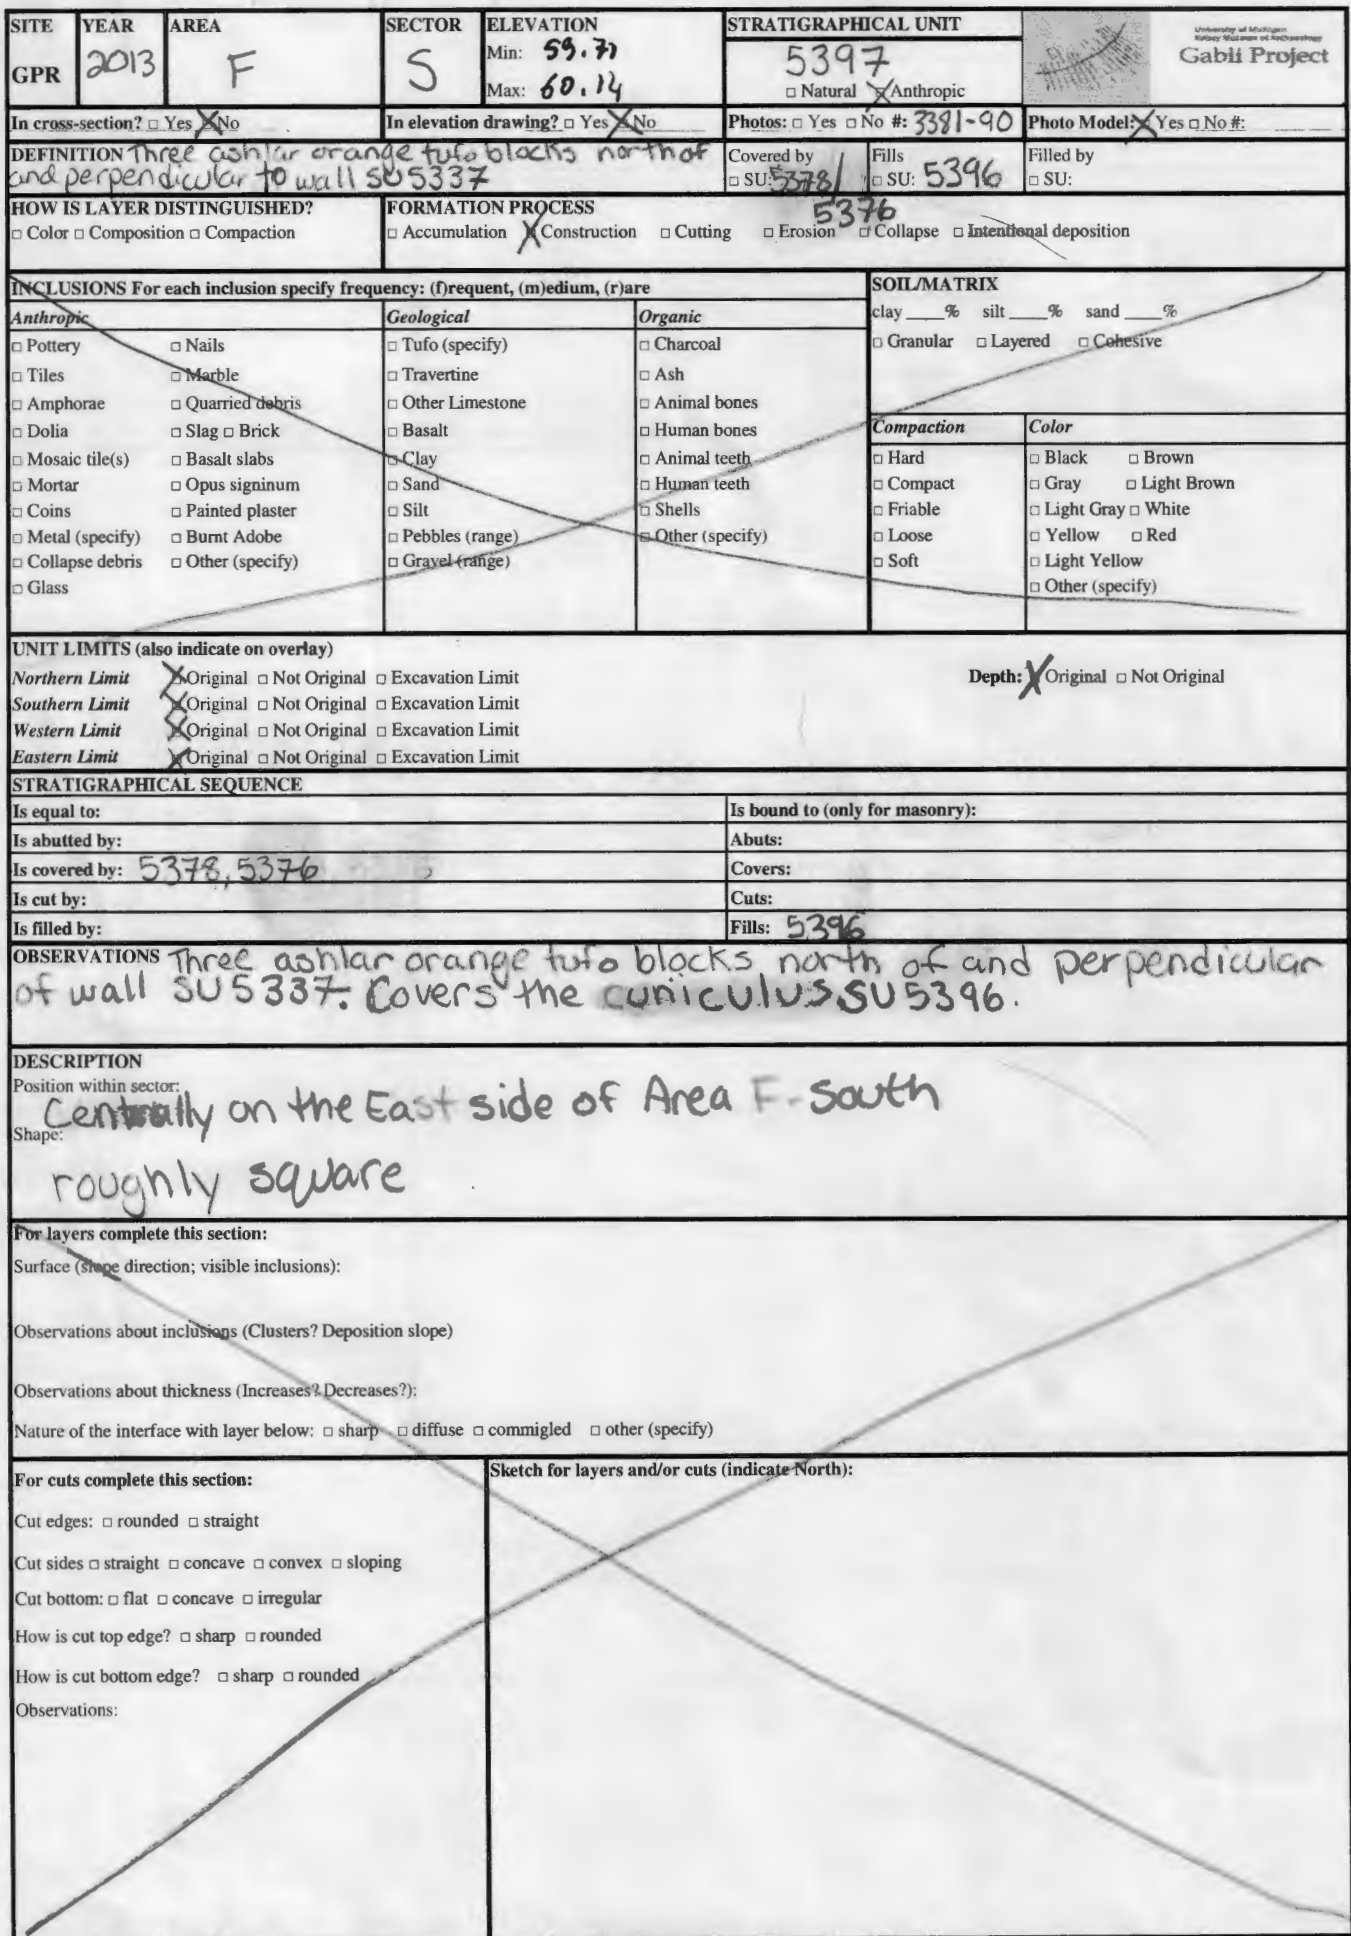 SITE YEAR AREA SECTOR ELEVATION STRATIGRAPHICAL UNIT
GPR 2013 F S Min: 59.71 5397
Max: 60.14 □ Natural ☒ Anthropic
University of Michigan
Kelsey Museum of Archaeology
Gabii Project
In cross-section? □ Yes ☒ No In elevation drawing? □ Yes ☒ No Photos: □ Yes □ No #: 3381-90 Photo Model: ☒ Yes □ No #:
DEFINITION Three ashlar orange tufo blocks north of
and perpendicular to wall SU 5337
Covered by
□ SU: 5378/
5376
Fills
□ SU: 5396
Filled by
□ SU:
HOW IS LAYER DISTINGUISHED?
□ Color □ Composition □ Compaction
FORMATION PROCESS
□ Accumulation ☒ Construction □ Cutting □ Erosion □ Collapse □ Intentional deposition
INCLUSIONS For each inclusion specify frequency: (f)requent, (m)edium, (r)are
Anthropic
□ Pottery □ Nails
□ Tiles □ Marble
□ Amphorae □ Quarried debris
□ Dolia □ Slag □ Brick
□ Mosaic tile(s) □ Basalt slabs
□ Mortar □ Opus signinum
□ Coins □ Painted plaster
□ Metal (specify) □ Burnt Adobe
□ Collapse debris □ Other (specify)
□ Glass
Geological
□ Tufo (specify)
□ Travertine
□ Other Limestone
□ Basalt
□ Clay
□ Sand
□ Silt
□ Pebbles (range)
□ Gravel (range)
Organic
□ Charcoal
□ Ash
□ Animal bones
□ Human bones
□ Animal teeth
□ Human teeth
□ Shells
□ Other (specify)
SOIL/MATRIX
clay ____% silt ____% sand ____%
□ Granular □ Layered □ Cohesive
Compaction
□ Hard
□ Compact
□ Friable
□ Loose
□ Soft
Color
□ Black □ Brown
□ Gray □ Light Brown
□ Light Gray □ White
□ Yellow □ Red
□ Light Yellow
□ Other (specify)
UNIT LIMITS (also indicate on overlay)
Northern Limit ☒ Original □ Not Original □ Excavation Limit Depth: ☒ Original □ Not Original
Southern Limit ☒ Original □ Not Original □ Excavation Limit
Western Limit ☒ Original □ Not Original □ Excavation Limit
Eastern Limit ☒ Original □ Not Original □ Excavation Limit
STRATIGRAPHICAL SEQUENCE
Is equal to: Is bound to (only for masonry):
Is abutted by: Abuts:
Is covered by: 5378, 5376 Covers:
Is cut by: Cuts:
Is filled by: Fills: 5396
OBSERVATIONS Three ashlar orange tufo blocks north of and perpendicular
of wall SU 5337. Covers the cuniculus SU 5396.
DESCRIPTION
Position within sector:
Centrally on the East side of Area F-South
Shape:
roughly square
For layers complete this section:
Surface (slope direction; visible inclusions):
Observations about inclusions (Clusters? Deposition slope)
Observations about thickness (Increases? Decreases?):
Nature of the interface with layer below: □ sharp □ diffuse □ commigled □ other (specify)
For cuts complete this section:
Cut edges: □ rounded □ straight
Cut sides □ straight □ concave □ convex □ sloping
Cut bottom: □ flat □ concave □ irregular
How is cut top edge? □ sharp □ rounded
How is cut bottom edge? □ sharp □ rounded
Observations:
Sketch for layers and/or cuts (indicate North):